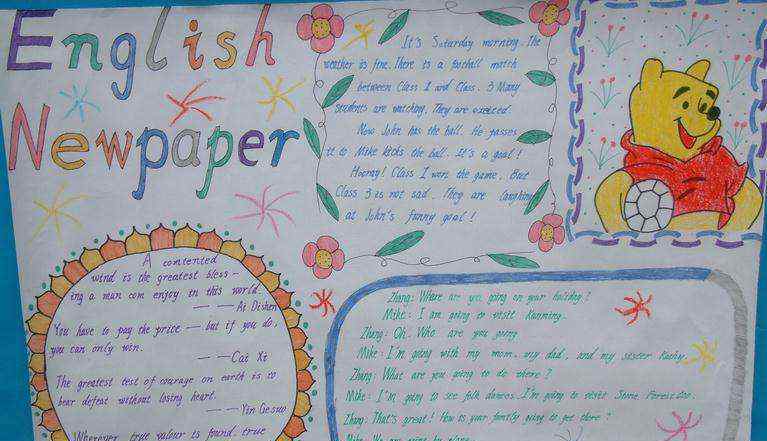 English
Newpaper
It's Saturday morning. The
weather is fine. There is a football match
between Class 1 and Class. 3 Many
students are watching. They are excited.
Now John has the ball. He passes
it to Mike kicks the ball. It's a goal!
Hooray! Class 1 wons the game. But
Class 3 is not sad. They are laughing
at John's funny goal!
A contented
wind is the greatest bless-
ing a man com enjoy in this world.
——Ai Dishen
You have to pay the price — but if you do,
you can only win.
——Cai Xi
The greatest test of courage on earth is to
bear defeat without losing heart.
——Yin Gesuo
Wherever true valour is found, true
Zhang: Where are you going on your holiday?
Mike: I am going to visit Kunming.
Zhang: Oh. Who are you going
Mike: I'm going with my mom, my dad, and my sister Kathy.
Zhang: What are you going to do there?
Mike: I'm going to see folk dances. I'm going to visit Stone Forest too.
Zhang: That's great! How is your family going to get there?
Mike: We are going by plane.